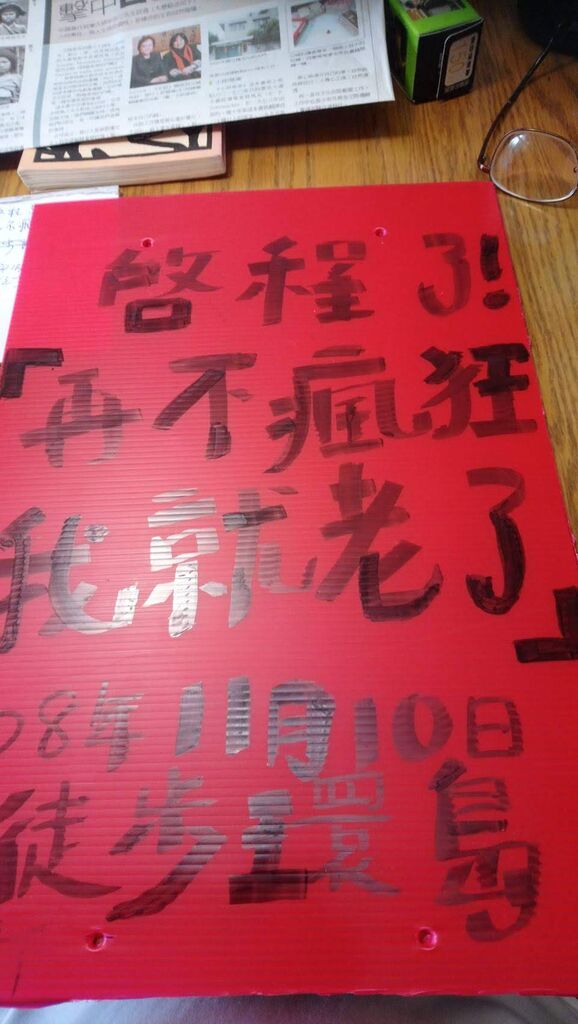 啓程了!
「再不瘋狂
我就老了」
08年11月10日
徒步環島